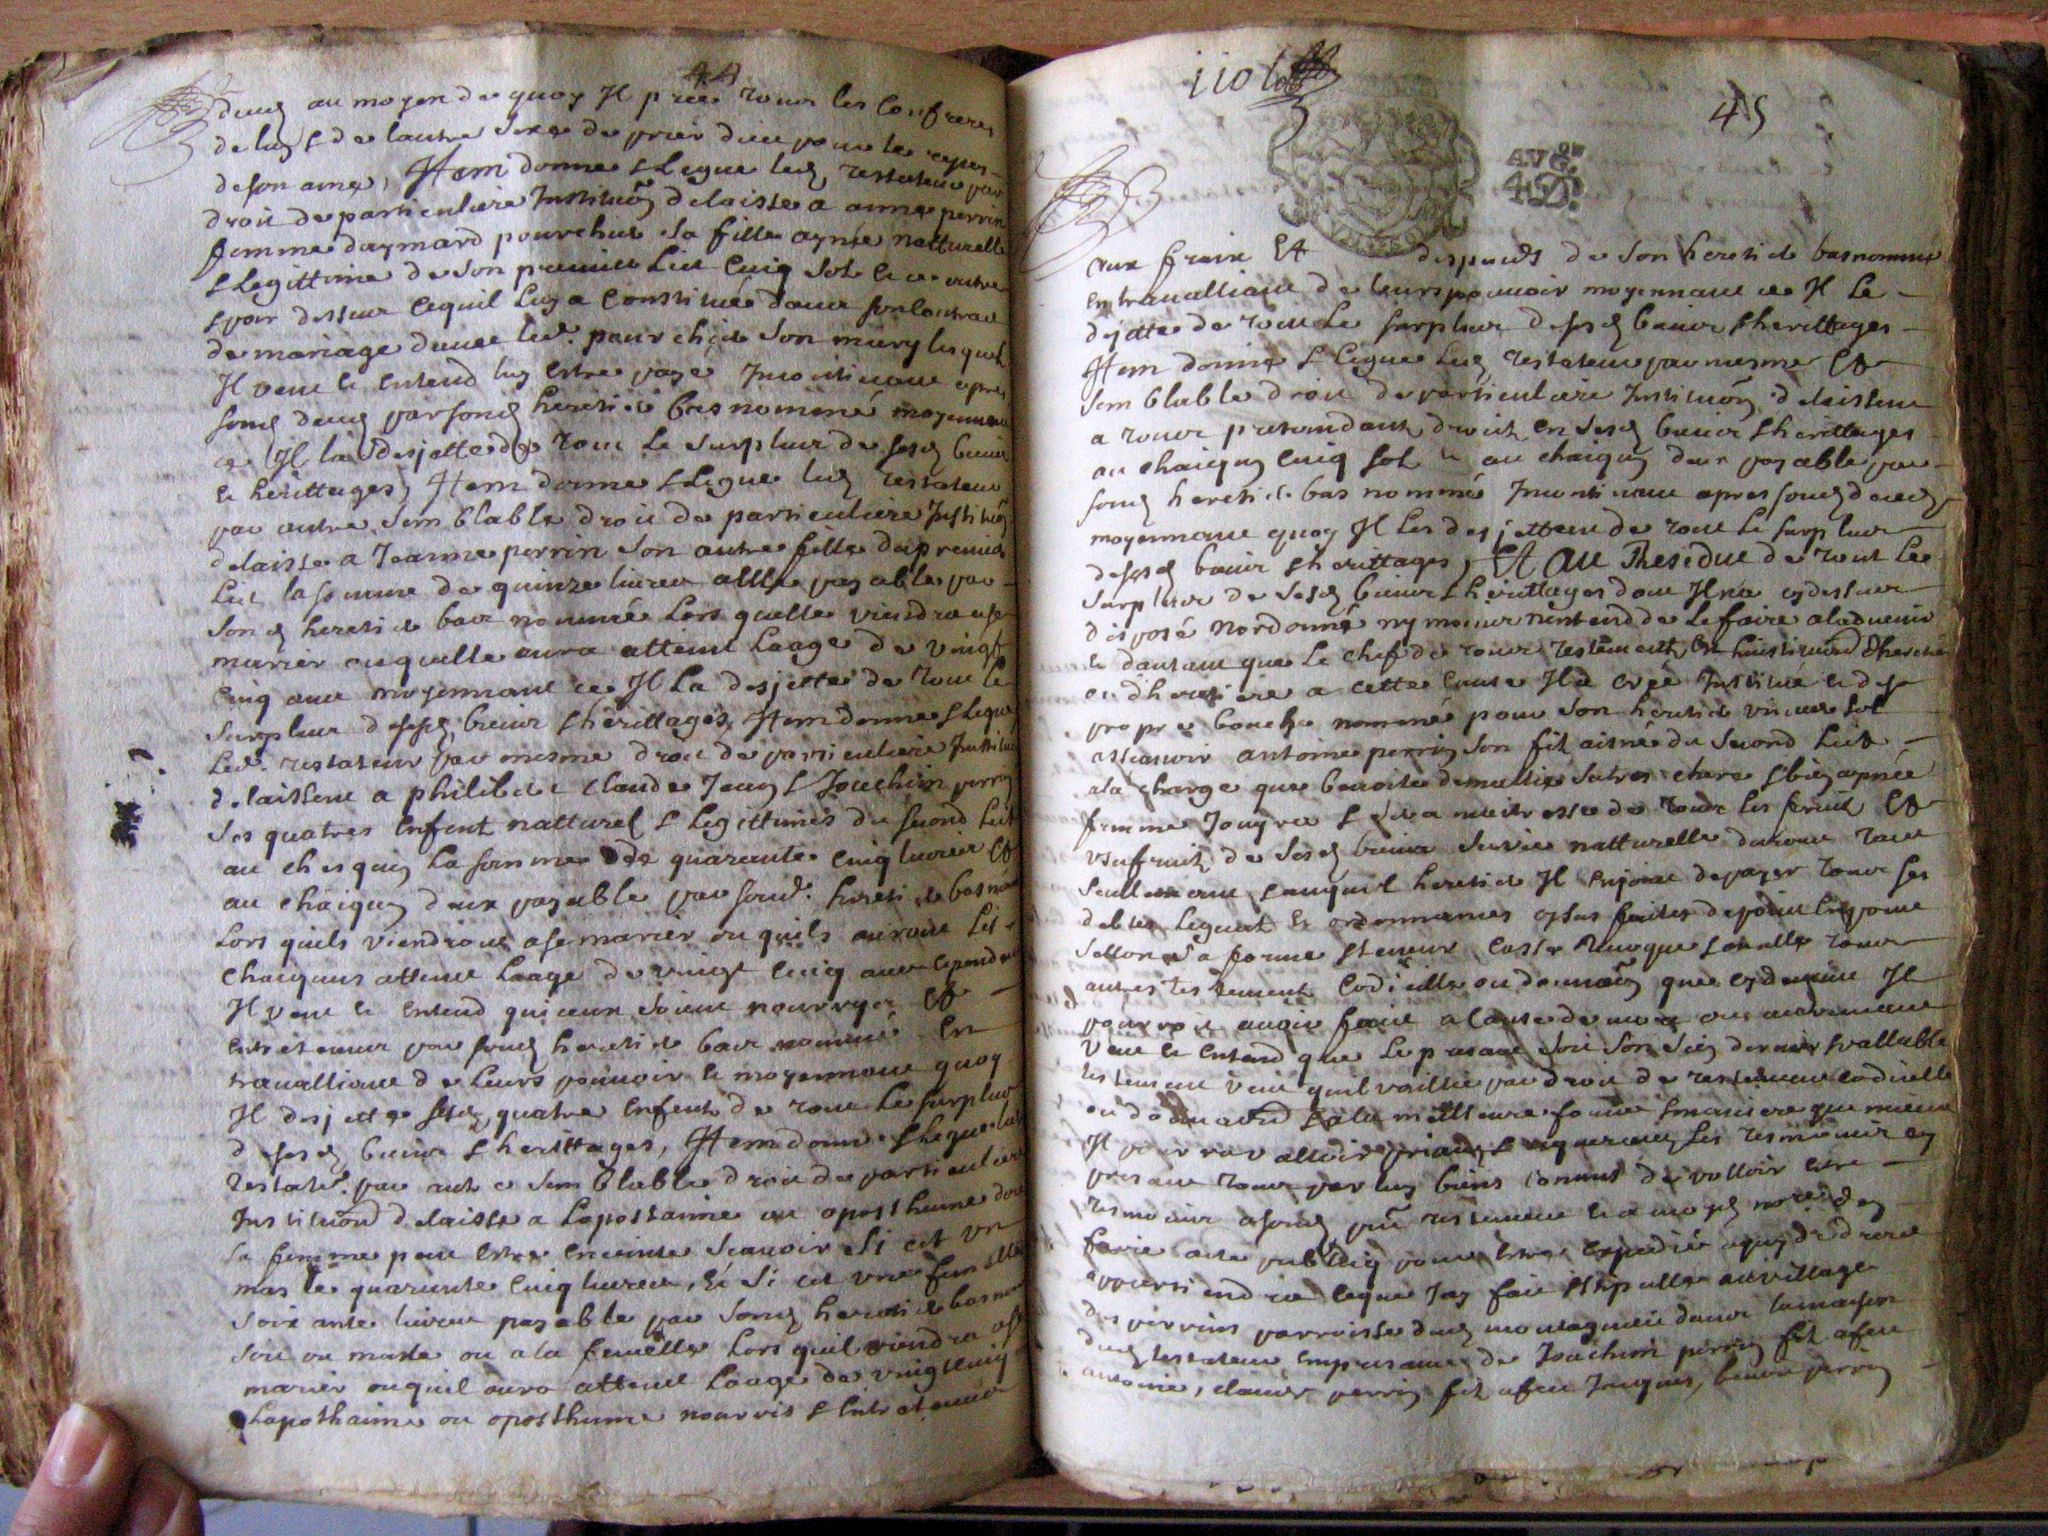 44
deces au moyen de quoy Il prie tous les Confreres
de luy & de lautre sexe de prier dieu pour le repos
de son ame, Item donne & Legue led testateur par
droit de particuliere Institution delaisse a anne perrin
femme daymard pourchut sa fille aynée natturelle
& Legittime de son premier Lict Cinq sols et ce outre
& par dessus cequil luy a Constitué dans son contrac
de mariage avec led. son mary lesquels
Il veut et entend luy estre payé Incontinant apres
sond deces par sond heretier bas nommé moyennant
ce Il la desjette de tout le surplus de sesd biens
et herittages, Item donne & Legue led testateur
par autre semblable droit de particuliere Institution
delaisse a Jeanne perrin son autre fille du premier
Lict la somme de quinze livres payable par
sond heretier bas nommé Lors quelle viendra a se
marier ou quelle aura atteint Laage de vingt
Cinq ans moyennant ce Il La desjette de tout le
surplus de sesd biens & herittages, Item donne & Legue
Led. testateur par mesme droit de particuliere Institution
delaissent a philibert Claude Jean & Joachim perrin
ses quatres enfent natturel & Legittimes du second Lict
au chasquin La somme de quarante Cinq livres Et
au chaiquin deux payable par sond. heretier bas nommé
Lors quils viendront a se marier ou quils auront Les
chaiquns atteint Laage de vingt Cinq ans cependant
Il veut et entend quiceux soient nourrys Et
entretenus par sond heretier bas nommé En
travalliant de Leurs pouvoir et moyennant quoy
Il desjette sesd quatre enfent de tout Le surplus
de sesd biens & herittages, Item donne & Legue led
testateur par autre semblable droit de particuliere
Institution delaisse a Lapostaime ou aposthume dont
sa femme peut estre enceinte scavoir si cest un
masle quarante Cinq livres, Et si cest une femelle
soixante livres payable par sond heretier bas nommé
soit au masle ou a la femelle Lors quil viendra a se
marier ou quil aura atteint Laage de vingt Cinq
Lapostaime ou aposthume nourris & Entretenus
45
AVG.ON
4 D.
aux fraix Et despends de son heretier bas nommé
en travalliant de leurs pouvoir moyennant ce Il Le
dejette de tout Le surplus de sesd biens & herittages
Item donne & legue led testateur par mesme Et
semblable droit de particuliere Institution delaissent
a tous pretendants droict en sesd biens & herittages
au chaiquin Cinq sols au chaiquin deux payable par
sond heretier bas nommé Incontinant apres sond deces
moyennant quoy Il Les desjettent de tout Le surplus
de sesd biens & herittages, Et Au Residue de tout Le
surplus de sesd biens & herittages dont Il na cy dessus
disposé N'ordonné ny moins n'entend de Le faire a ladvenir
et dautant que Le chef de tous testament Est Linstitution dheretier
ou dheretiere a cette cause Il a créé Institué et de sa
propre bouche nommé pour son heretier unicver sel
assavoir antoine perrin son fils aisné du second Lict
a la charge que benoite sa tres chere & bien aymée
femme Jouyra & sera maitresse de tous les fruits Et
usufruits de sesd biens sa vie natturelle durant tant
seullement auquel heretier Il enjoint de payer tous ses
debtes legats et ordonnances cy sus faites de point en point
sellon sa forme & teneur casse Revoque & anulle tous
autres testament Codicille ou donation que cy devant Il
pourroit avoir fait a Cause de mort ou autrement
veut et entend que Le presant soit son sien dernier & vallable
testement veut quil vaillie par droit de testement codicille
ou donation & a la mellieure forme & maniere que mieux
Il pourra valloir priant & requerant les tesmoins cy
presant tous par luy biens connus de volloir estre
tesmoins a sond pnt testement et a moyd notre den
faire acte publicq pour estre expedié a quy de droit
appartiendra lequel Jay fait & stipullé au village
des perrins parroisse dud montagnieu dans la maison
dud testateur en presance de Joachim perrin fils a feu
antoine, Claude perrin fils a feu Jacques, benoit perrin